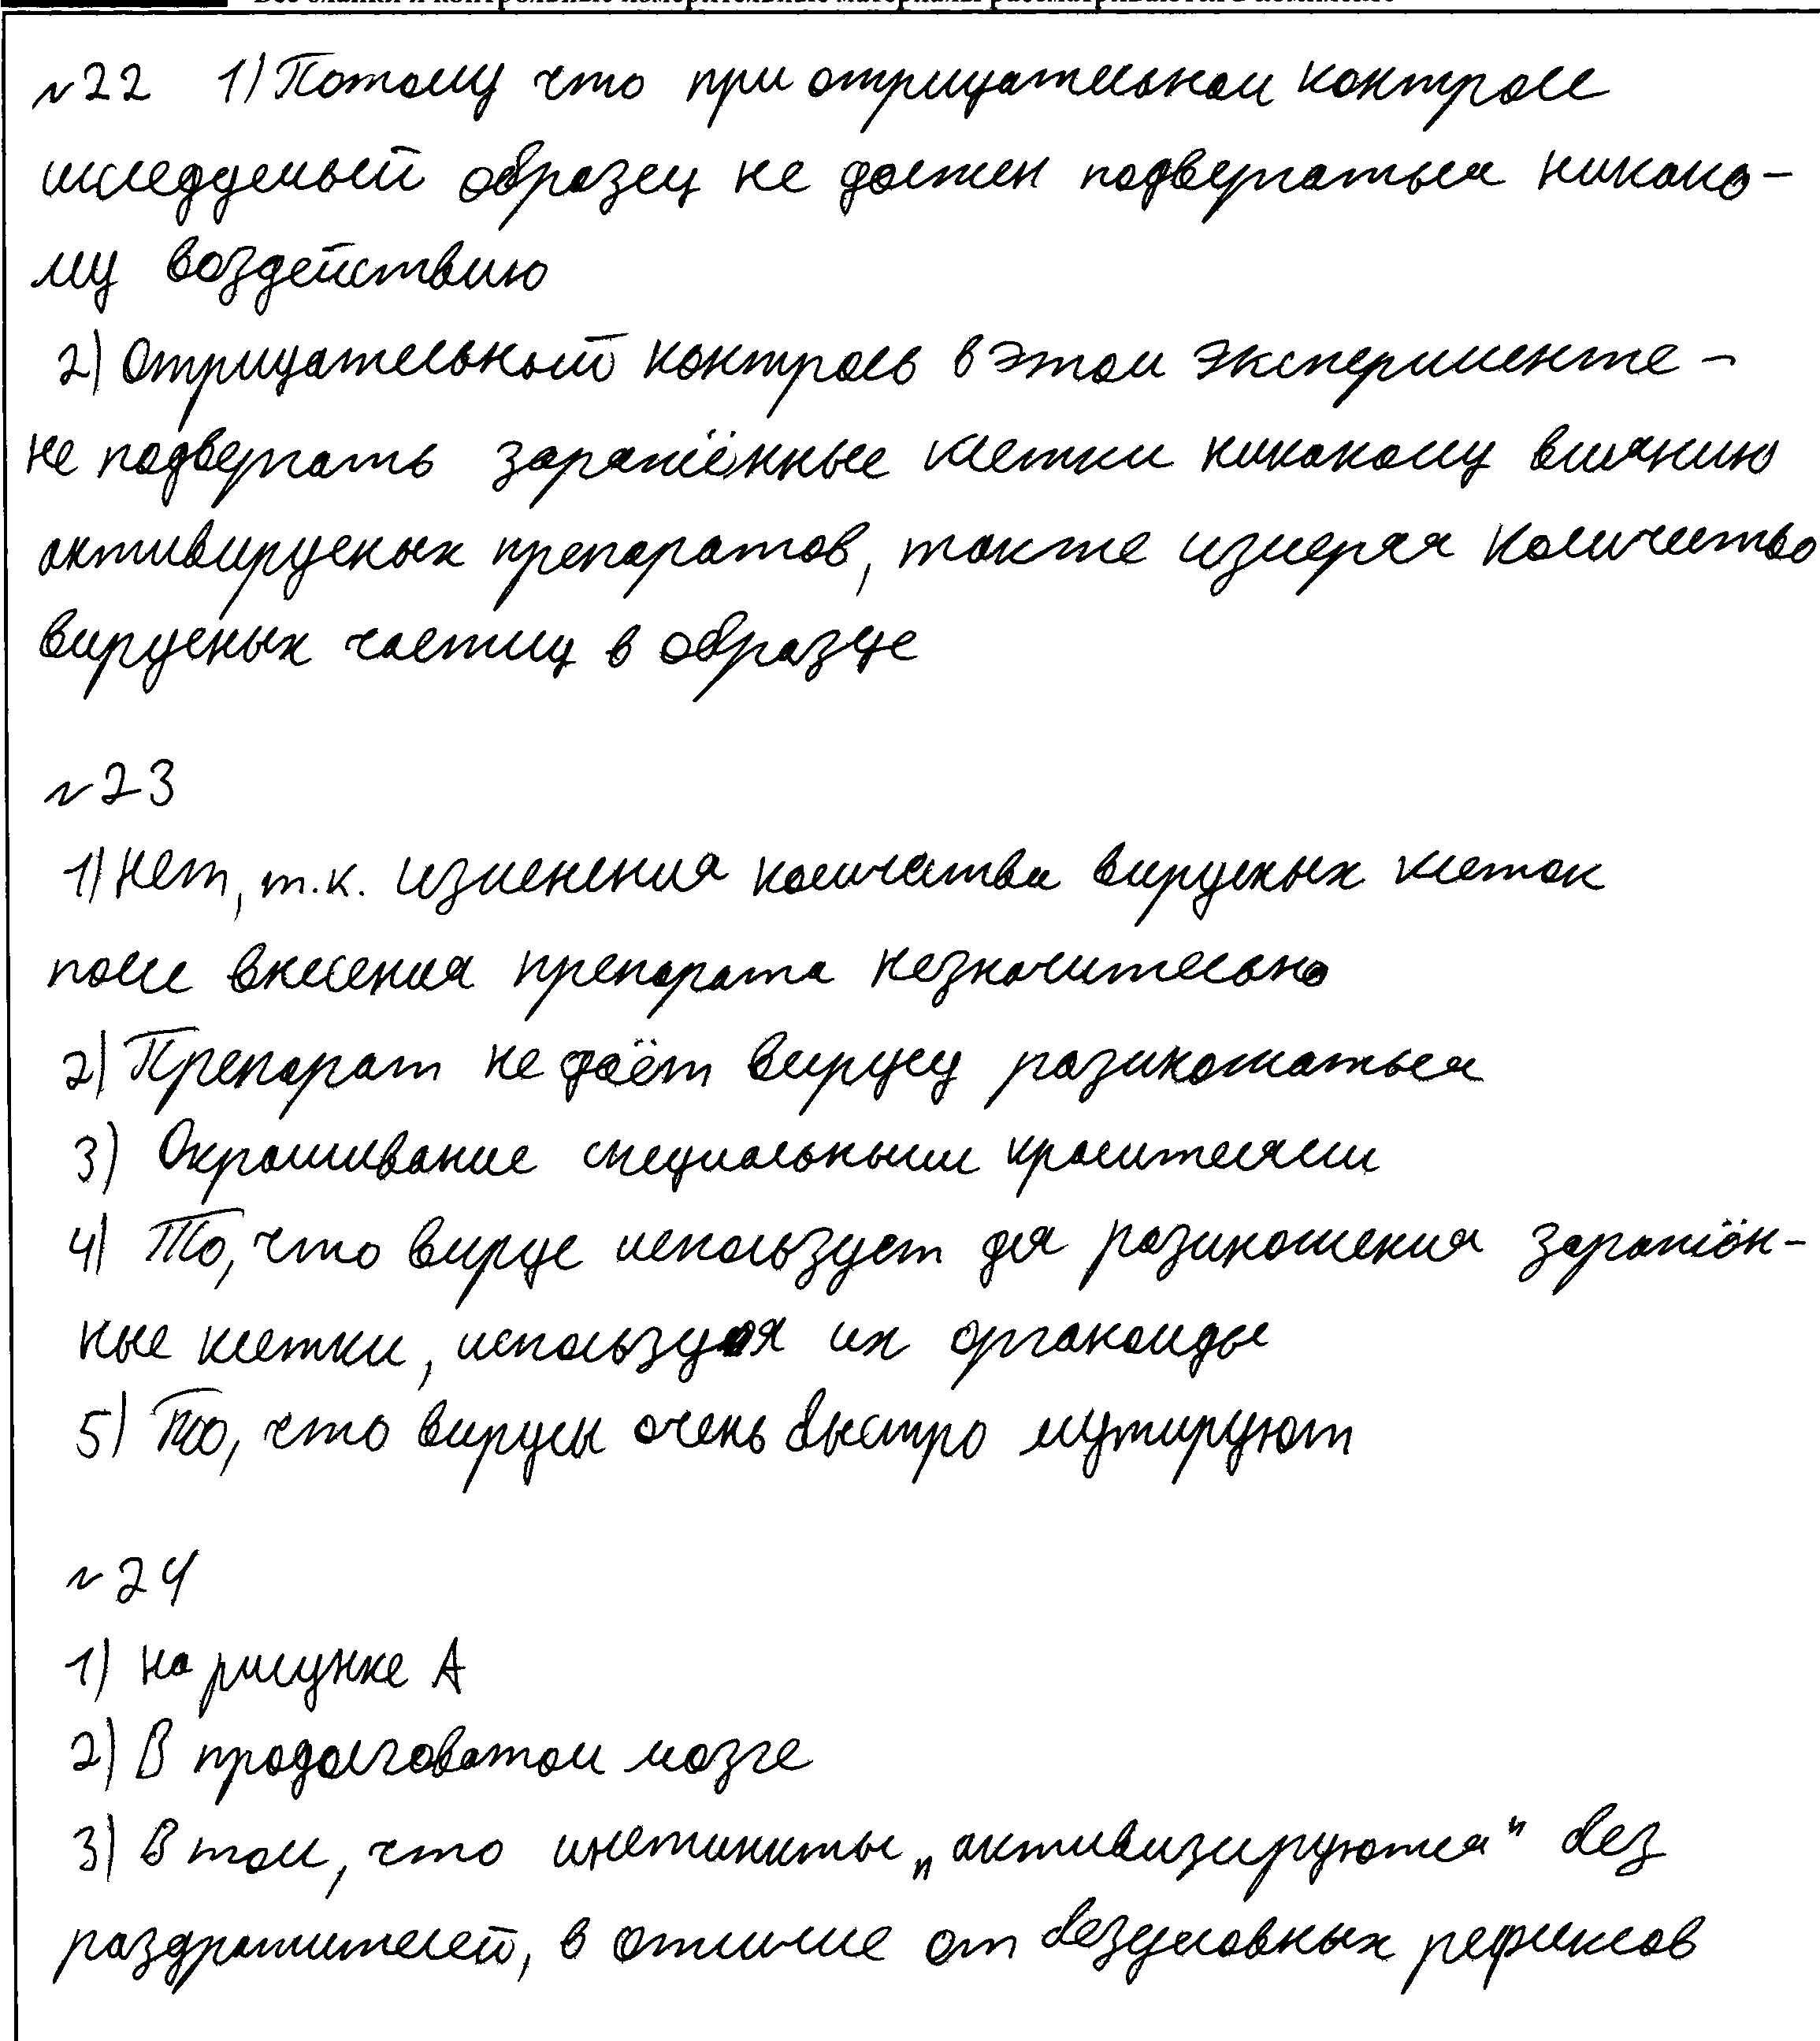 Все бланки и контрольные измерительные материалы рассматриваются в комплекте
№22 1) Потому что при отрицательном контроле
исследуемый образец не должен подвергаться никако-
му воздействию
2) Отрицательный контроль в этом эксперименте –
не подвергать заражённые клетки никакому влиянию
активирусных препаратов, также измеряя количество
вирусных частиц в образце
№23
1) Нет, т.к. изменения количества вирусных клеток
после внесения препарата незначительно
2) Препарат не даёт вирусу размножаться
3) Окрашивание специальными красителями
4) То, что вирус использует для размножения заражён-
ные клетки, используя их органоиды
5) То, что вирусы очень быстро мутируют
№24
1) На рисунке А
2) В продолговатом мозге
3) В том, что инстинкты „активизируются" без
раздражителей, в отличие от безусловных рефлексов